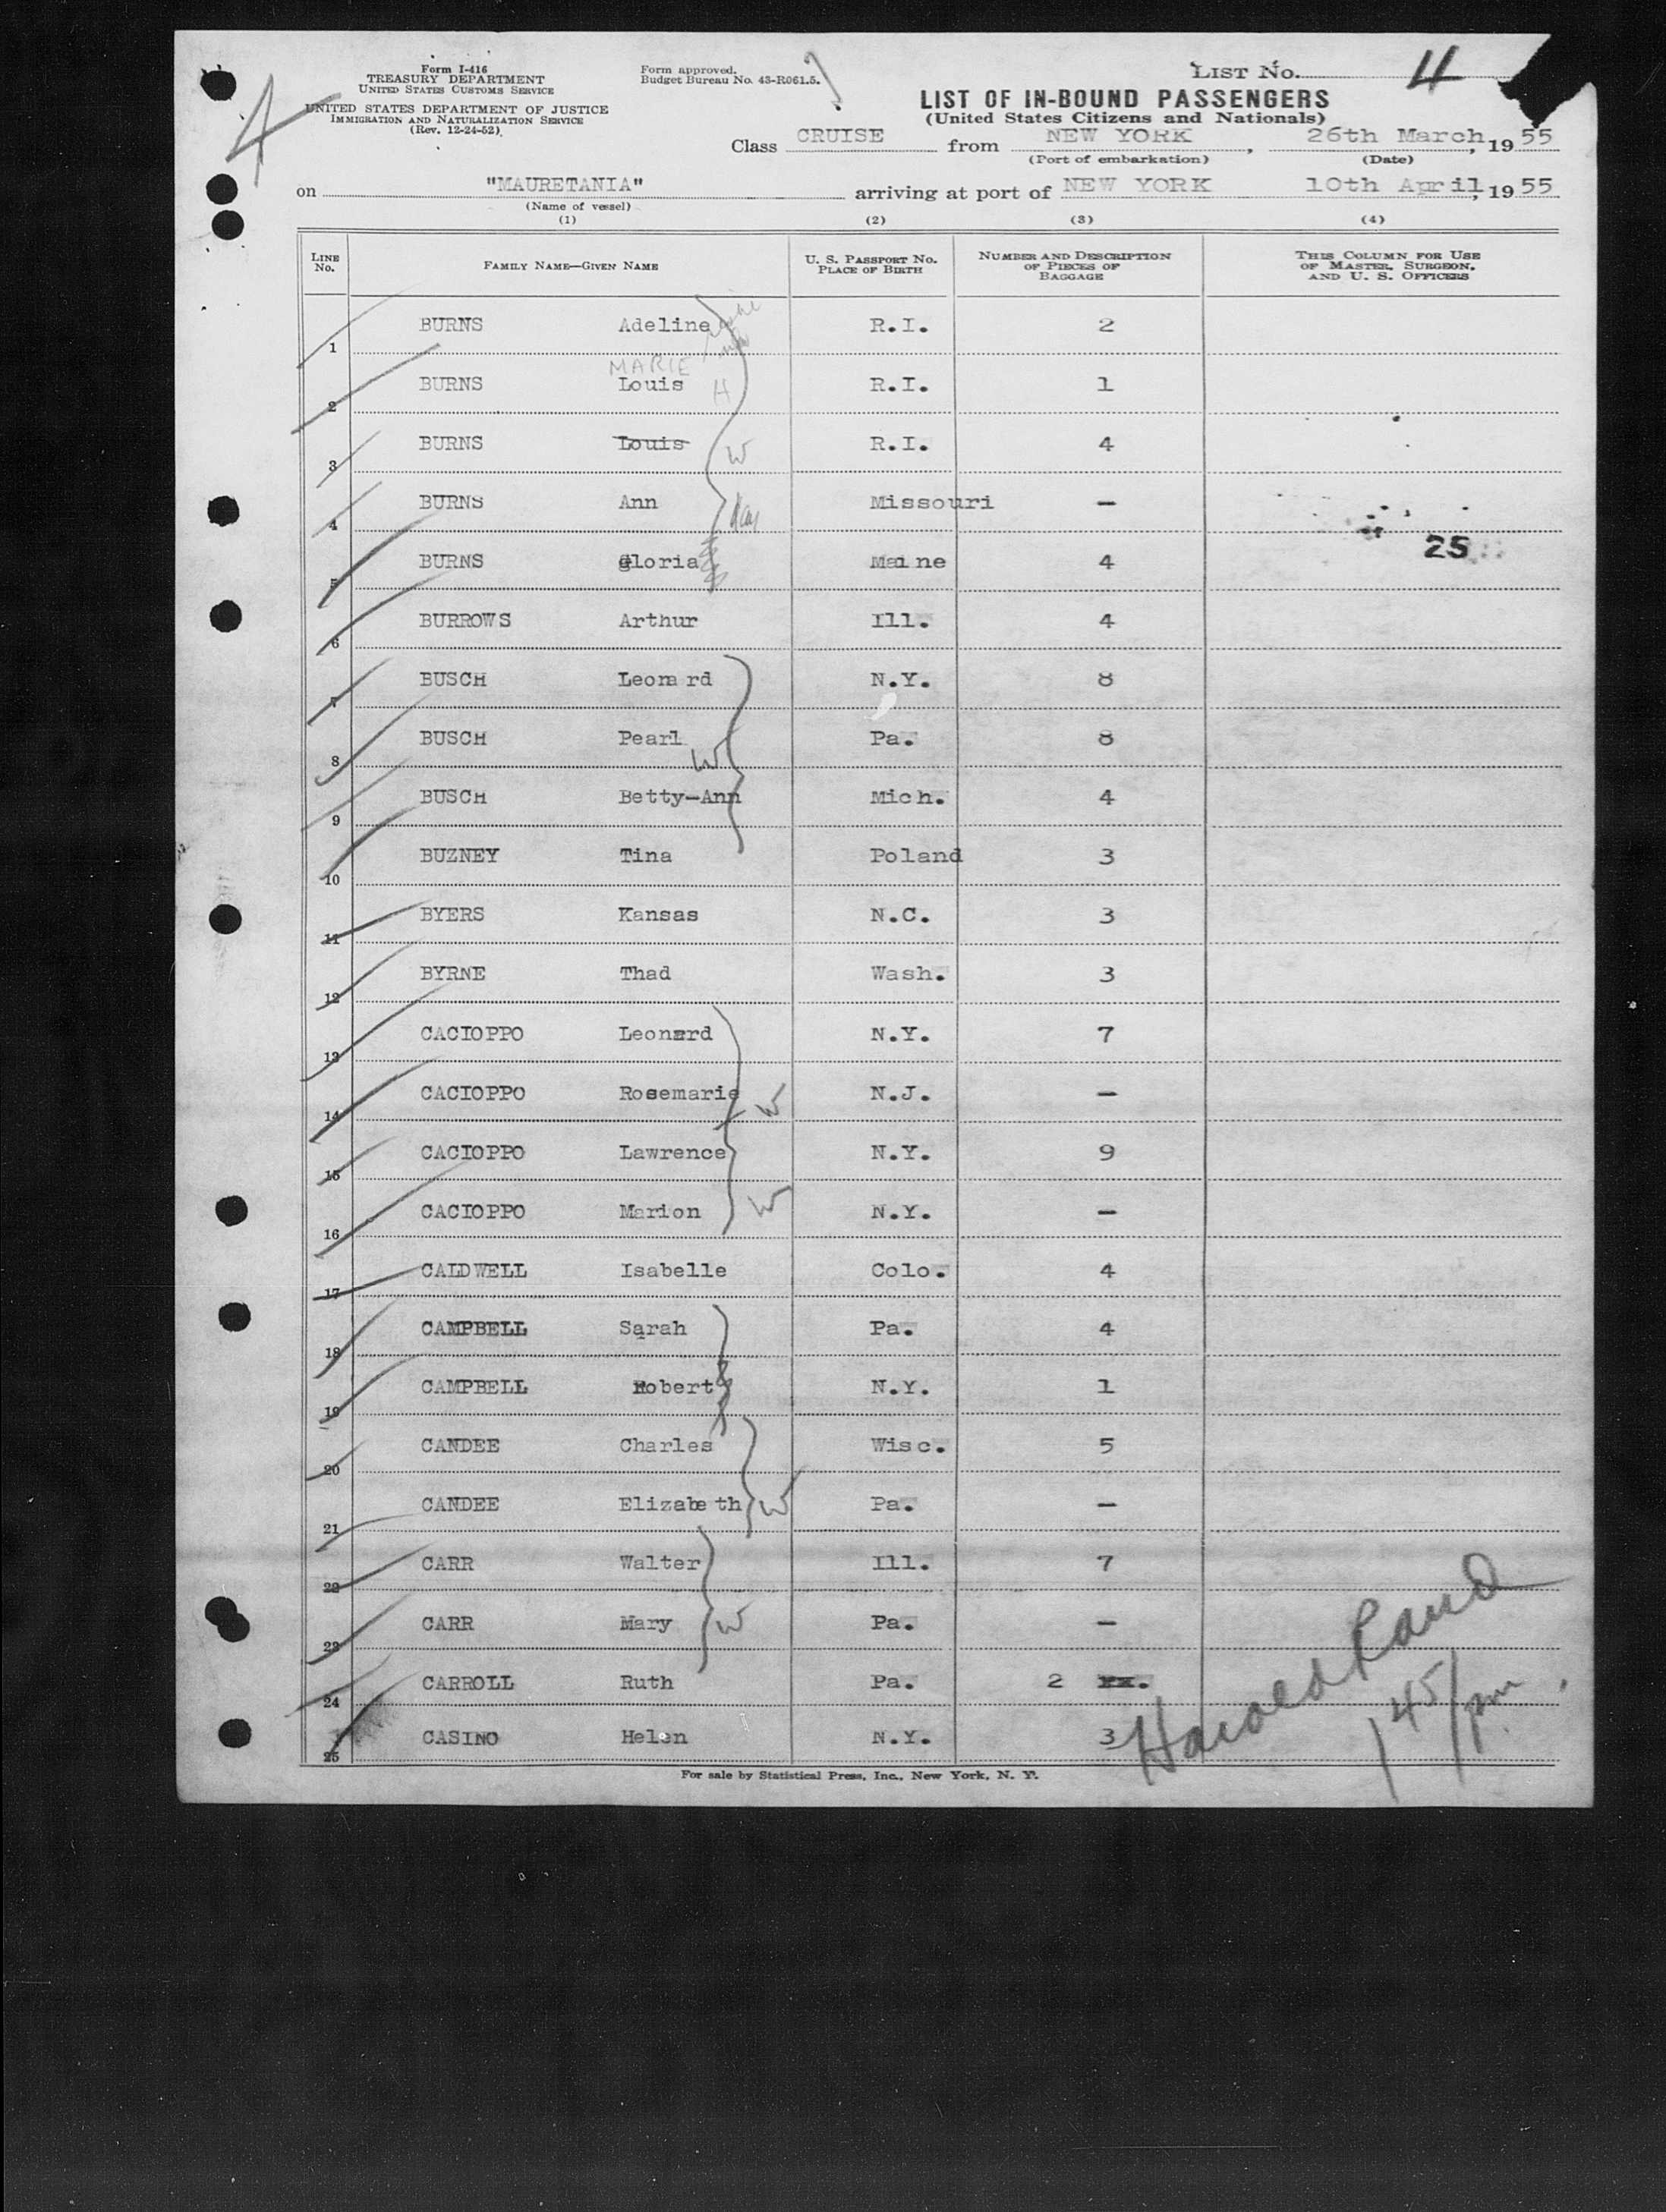 Form I-416
TREASURY DEPARTMENT
UNITED STATES CUSTOMS SERVICE
UNITED STATES DEPARTMENT OF JUSTICE
IMMIGRATION AND NATURALIZATION SERVICE
(Rev. 12-24-52)
Form approved.
Budget Bureau No. 43-R061.5.
4
LIST No. 4
LIST OF IN-BOUND PASSENGERS
(United States Citizens and Nationals)
Class CRUISE from NEW YORK, 26th March, 1955
(Port of embarkation) (Date)
on "MAURETANIA" arriving at port of NEW YORK 10th April, 1955
(Name of vessel)
(1) (2) (3) (4)
LINE No. FAMILY NAME—GIVEN NAME U. S. PASSPORT No. PLACE OF BIRTH NUMBER AND DESCRIPTION OF PIECES OF BAGGAGE THIS COLUMN FOR USE OF MASTER, SURGEON, AND U. S. OFFICERS
1 BURNS Adeline R.I. 2
MARIE
2 BURNS Louis H R.I. 1
3 BURNS Louis W R.I. 4
4 BURNS Ann Missouri —
25
5 BURNS Gloria Maine 4
6 BURROWS Arthur Ill. 4
7 BUSCH Leonard N.Y. 8
8 BUSCH Pearl W Pa. 8
9 BUSCH Betty-Ann Mich. 4
10 BUZNEY Tina Poland 3
11 BYERS Kansas N.C. 3
12 BYRNE Thad Wash. 3
13 CACIOPPO Leonard N.Y. 7
14 CACIOPPO Rosemarie W N.J. —
15 CACIOPPO Lawrence N.Y. 9
16 CACIOPPO Marion W N.Y. —
17 CALDWELL Isabelle Colo. 4
18 CAMPBELL Sarah Pa. 4
19 CAMPBELL Robert N.Y. 1
20 CANDEE Charles Wisc. 5
21 CANDEE Elizabeth W Pa. —
22 CARR Walter Ill. 7
23 CARR Mary W Pa. —
24 CARROLL Ruth Pa. 2
25 CASINO Helen N.Y. 3
Harold Rand
1 45/pm
For sale by Statistical Press, Inc., New York, N. Y.